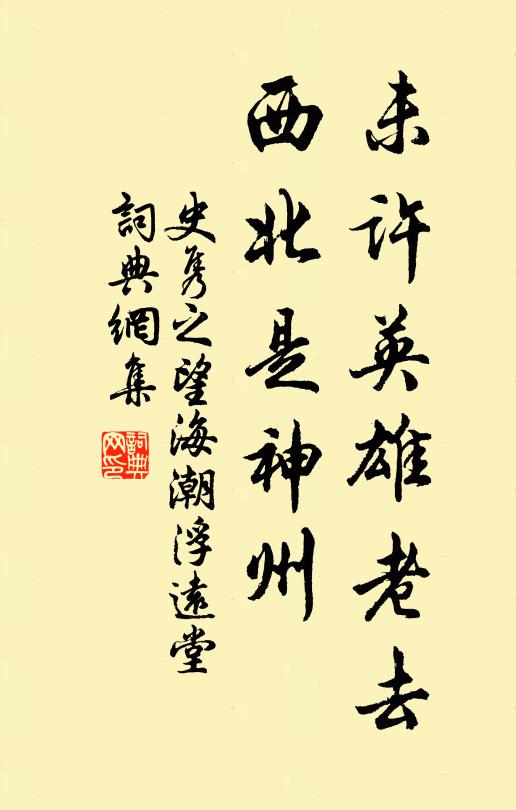 未许英雄老去
西北是神州
史隽之望海潮浮遠堂
詞典網集
詞典
网印